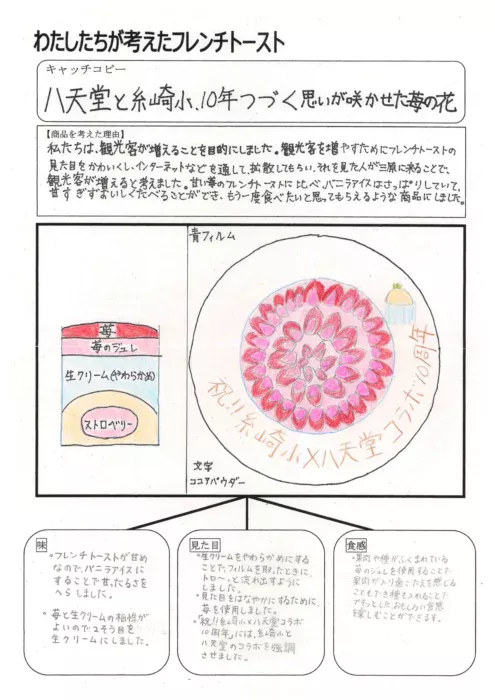 わたしたちが考えたフレンチトースト
キャッチコピー
八天堂と糸崎小、10年つづく思いが咲かせた苺の花
【商品を考えた理由】
私たちは、観光客が増えることを目的にしました。観光客を増やすためにフレンチトーストの
見た目をかわいくし、インターネットなどを通して、拡散してもらい、それを見た人が三原に来ることで、
観光客が増えると考えました。甘い苺のフレンチトーストに比べ、バニラアイスはさっぱりしていて、
甘すぎずおいしくたべることができ、もう一度食べたいと思ってもらえるような商品にしました。
青フィルム
苺
苺のジュレ
生クリーム(やわらかめ)
ストロベリー
祝!!糸崎小×八天堂コラボ10周年
文字
ココアパウダー
味
・フレンチトーストが甘め
なので、バニラアイスに
することで甘ったるさを
へらしました。
・苺と生クリームの相性が
よいので2そう目を
生クリームにしました。
見た目
・生クリームをやわらかめにする
ことで、フィルムを取ったときに
トロ〜っと流れ出すように
しました。
・見た目をはなやかにするために、
苺を使用しました。
・「祝!!糸崎小×八天堂コラボ
10周年」には、糸崎小と
八天堂のコラボを強調
させました。
食感
・果肉や種がふくまれている
苺のジュレを使用することで
果肉が入り
ことも
楽しむことができます。